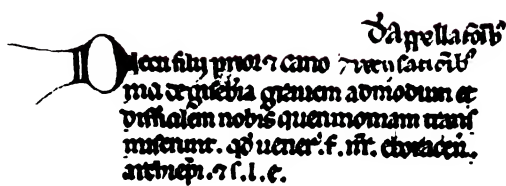 D' Appellatōīb'
Dilecti filij prior ⁊ cano ⁊ recusatiōīb'
nici de giseb̄ia grauem admodum et
difficilem nobis querimoniam trans
miserunt. qd' uener'. f. nr̄. eboraceñ.
archiep̄i. ⁊ s. l. e.